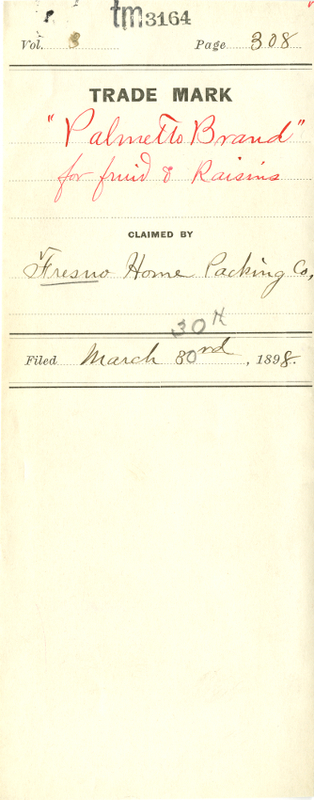 tm3164
Vol. 3 Page 308
TRADE MARK
"Palmetto Brand"
for fruid & Raisins
CLAIMED BY
Fresno Home Packing Co,
30th
Filed March 30rd, 1898.